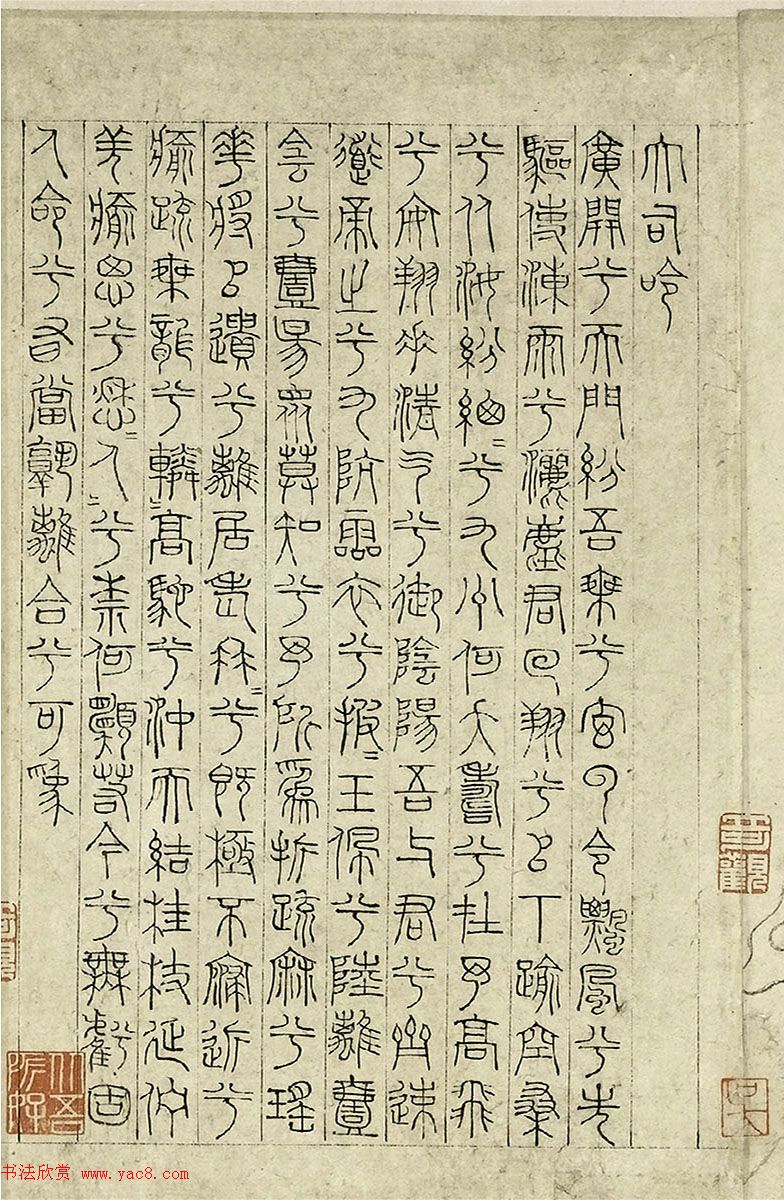 大司命
廣開兮天門紛吾乘兮玄雲令飄風兮先
驅使涷雨兮灑塵君回翔兮㠯下踰空桑
兮從汝紛緫=兮九州何夭壽兮在予高飛
兮安翔乘清气兮御陰陽吾与君兮齊速
導帝之兮九阬靈衣兮披=玉佩兮陸離壹
陰兮壹昜眾莫知兮予所爲折疏麻兮瑤
華將㠯遺兮離居老冉=兮既極不寖近兮
愈疏乘龍兮轔=高馳兮沖天結桂枝延佇
羌愈思兮愁=人=兮柰何願若今兮無虧固
人命兮有當孰離合兮可爲
书法欣赏 www.yac8.com